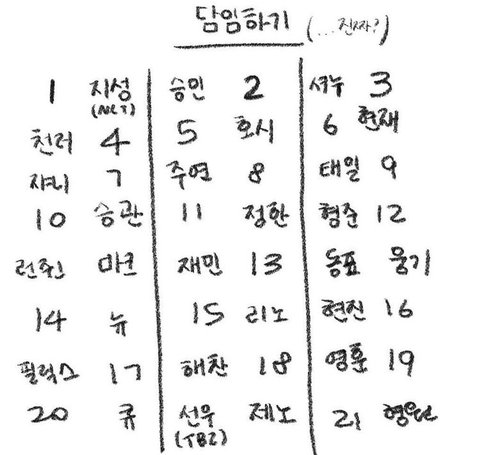 담임하기 (...진짜?)
1 지성 (NCT) 승민 2 셔누 3
천러 4 5 호시 6 현재
쟈니 7 주연 8 태일 9
10 승관 11 정한 형준 12
런쥔 마크 재민 13 동표 웅기
14 뉴 15 리노 현진 16
필릭스 17 해찬 18 영훈 19
20 큐 선우 (TBZ) 제노 21 형원